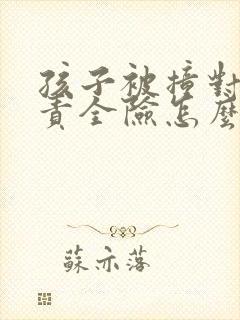 孩子被撞對
責全險怎麼
蘇亦落